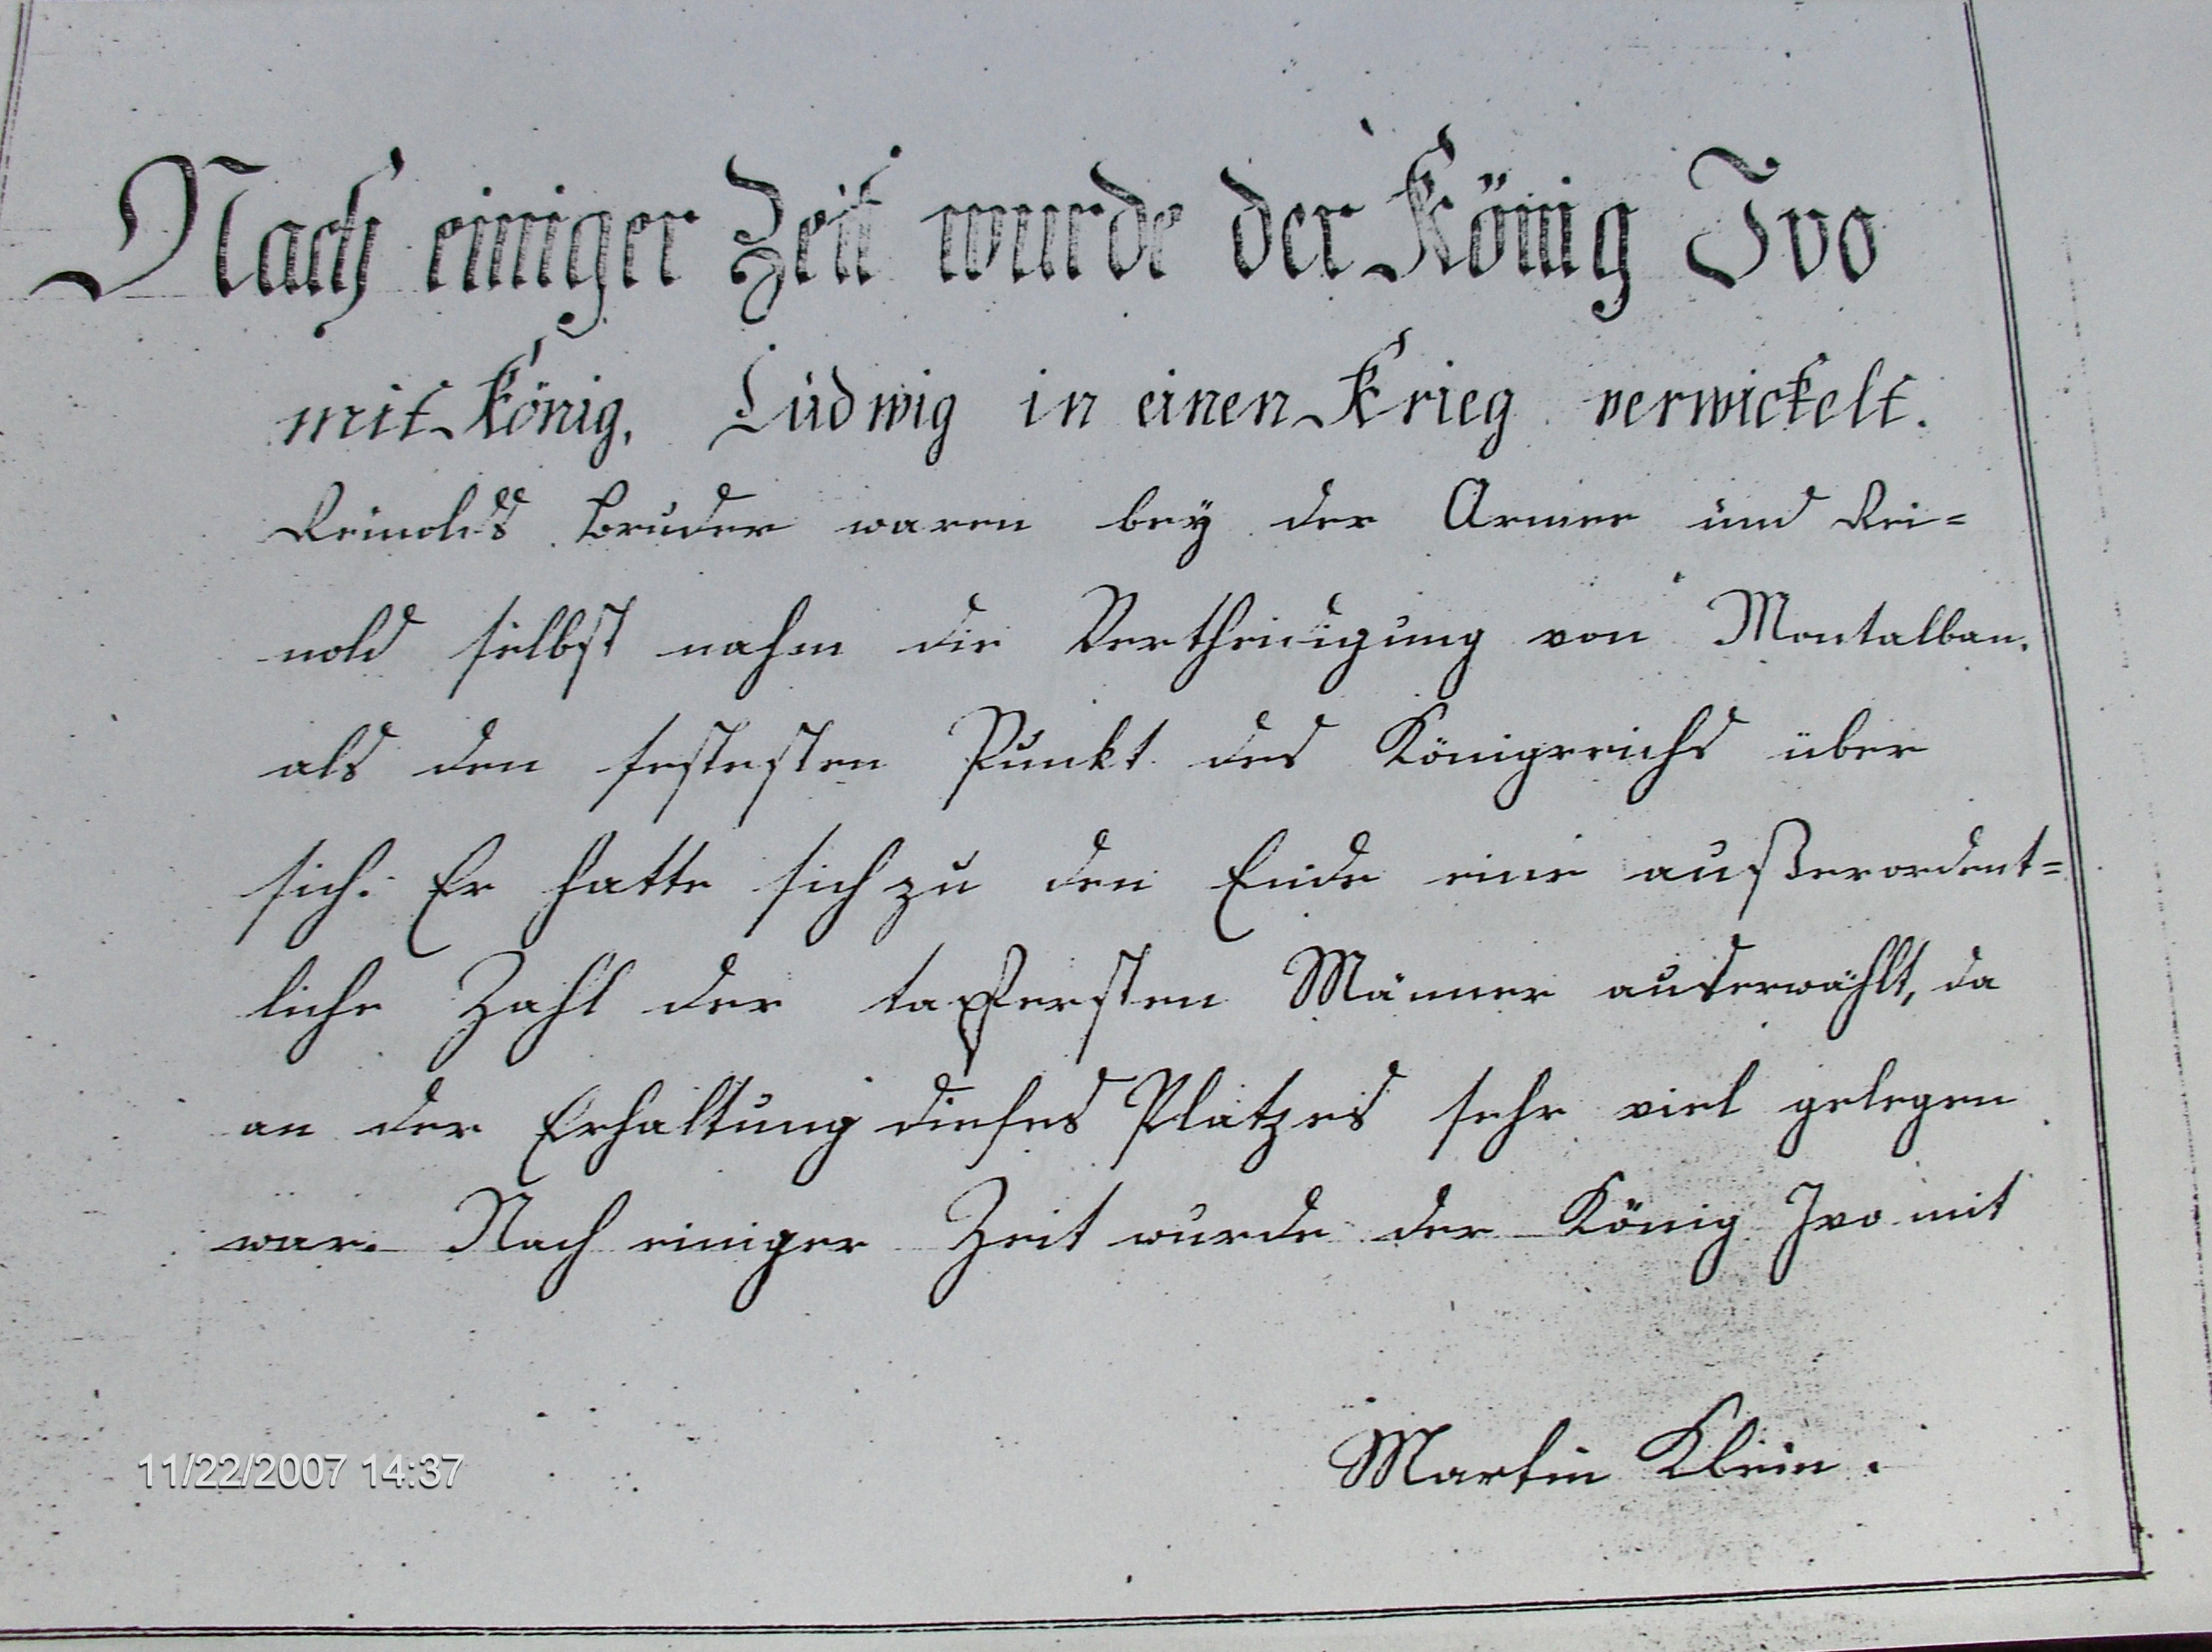 Nach einiger Zeit wurde der König Ivo
mit König, Ludwig in einen Krieg verwickelt.
Reinolds Bruder waren bey der Armee und Rei=
nold selbst nahm die Vertheidigung von Montalban.
als den festesten Punkt des Königreichs über
sich. Er hatte sich zu den Ende eine außerordent=
liche Zahl der tapfersten Männer auserwählt, da
an der Erhaltung dieses Platzes sehr viel gelegen
war. Nach einiger Zeit wurde der König Ivo mit
Martin Klein.
11/22/2007 14:37